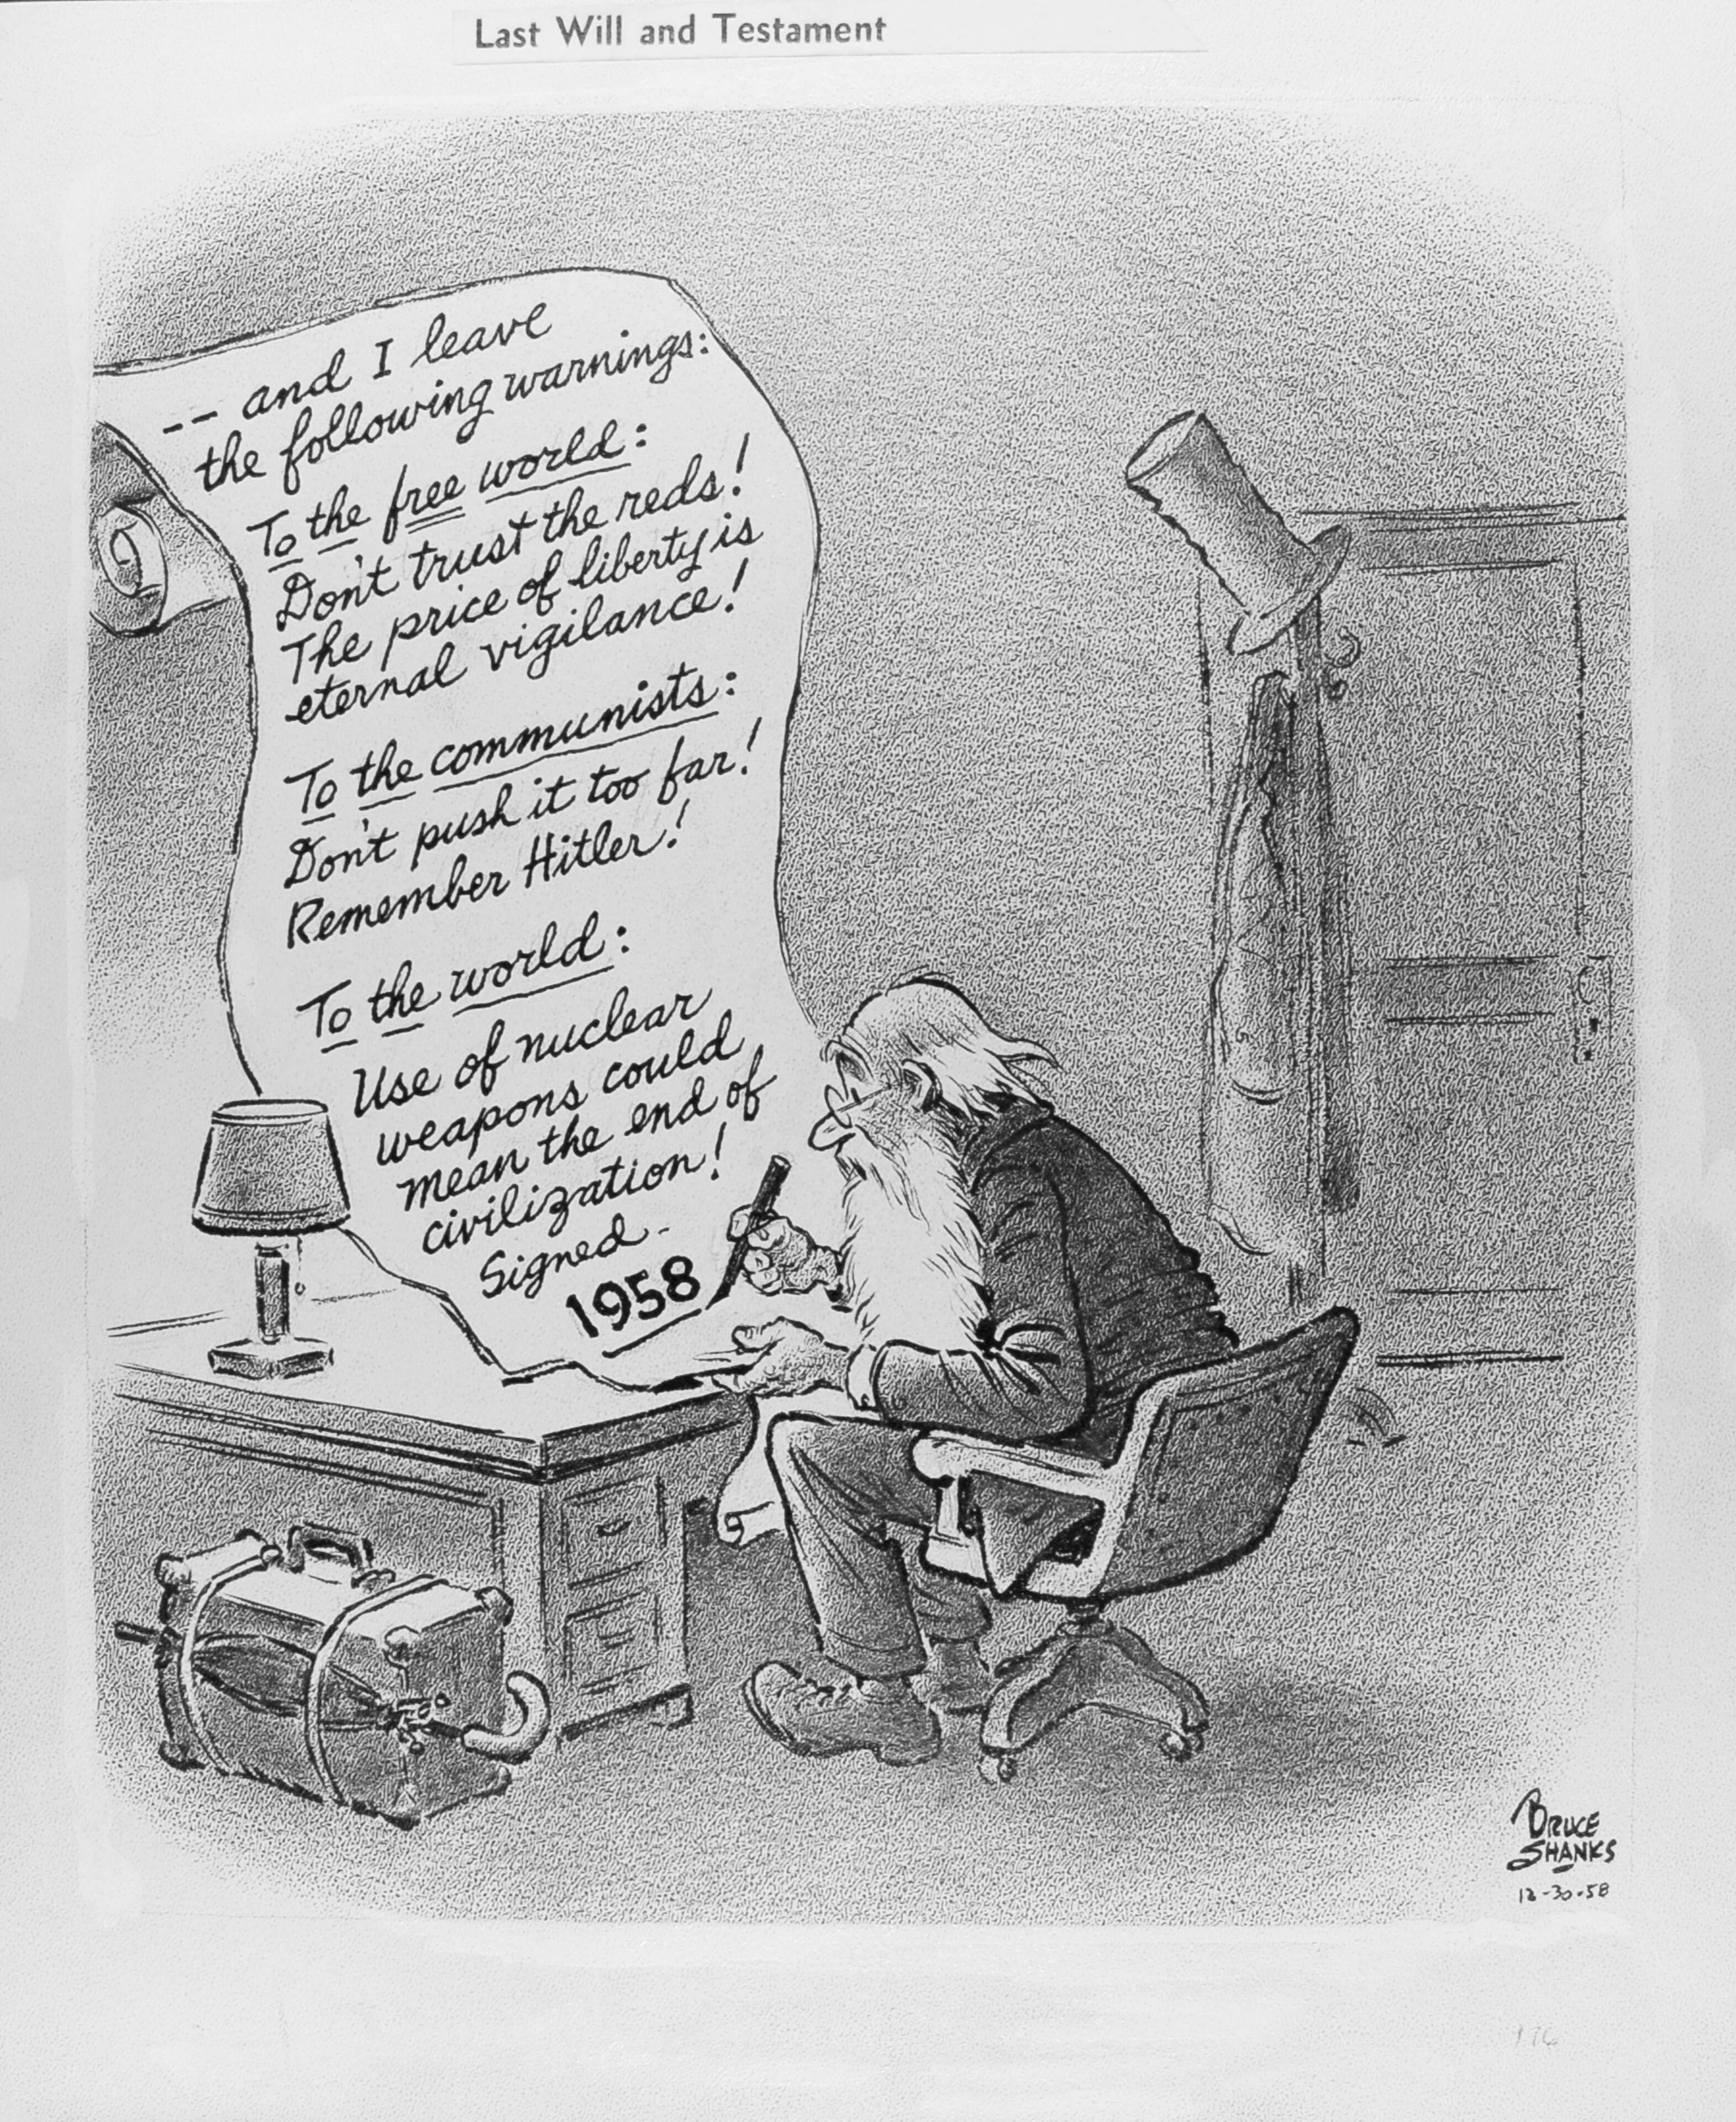 Last Will and Testament
-- and I leave
the following warnings:
To the free world:
Don't trust the reds!
The price of liberty is
eternal vigilance!
To the communists:
Don't push it too far!
Remember Hitler!
To the world:
Use of nuclear
weapons could
mean the end of
civilization!
Signed -
1958
BRUCE
SHANKS
12-30-58